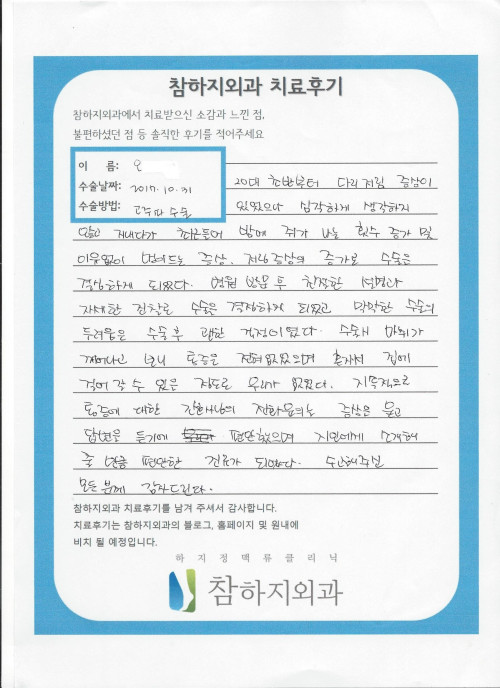 참하지외과 치료후기
참하지외과에서 치료받으신 소감과 느낀 점,
불편하셨던 점 등 솔직한 후기를 적어주세요
이 름: 오
수술날짜: 2017. 10. 31
수술방법: 고주파 수술
20대 초반부터 다리저림 증상이
있었으나 심각하게 생각하지
않고 지내다가 최근들어 밤에 쥐가 나는 횟수 증가 및
이유없이 멍이드는 증상, 저림증상의 증가로 수술을
결심하게 되었다. 병원 방문 후 친절한 설명과
자세한 검찰로 수술을 결정하게 되었고 막막한 수술의
두려움은 수술 후 괜한 걱정이었다. 수술시 마취가
깨어나고 보니 통증은 전혀 없었으며 혼자서 집에
걸어 갈 수 있을 정도로 무리가 없었다. 지속적으로
통증에 대한 간호사님의 전화문의는 증상을 묻고
답변을 듣기에 편안했으며 지인에게 소개해
줄 만큼 편안한 진료가 되었다. 수고해주신
모든 분께 감사드린다.
참하지외과 치료후기를 남겨 주셔서 감사합니다.
치료후기는 참하지외과의 블로그, 홈페이지 및 원내에
비치 될 예정입니다.
하지정맥류클리닉
참하지외과